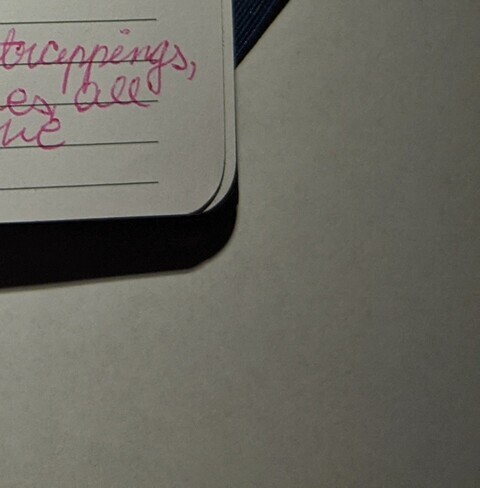 trappings,
es all